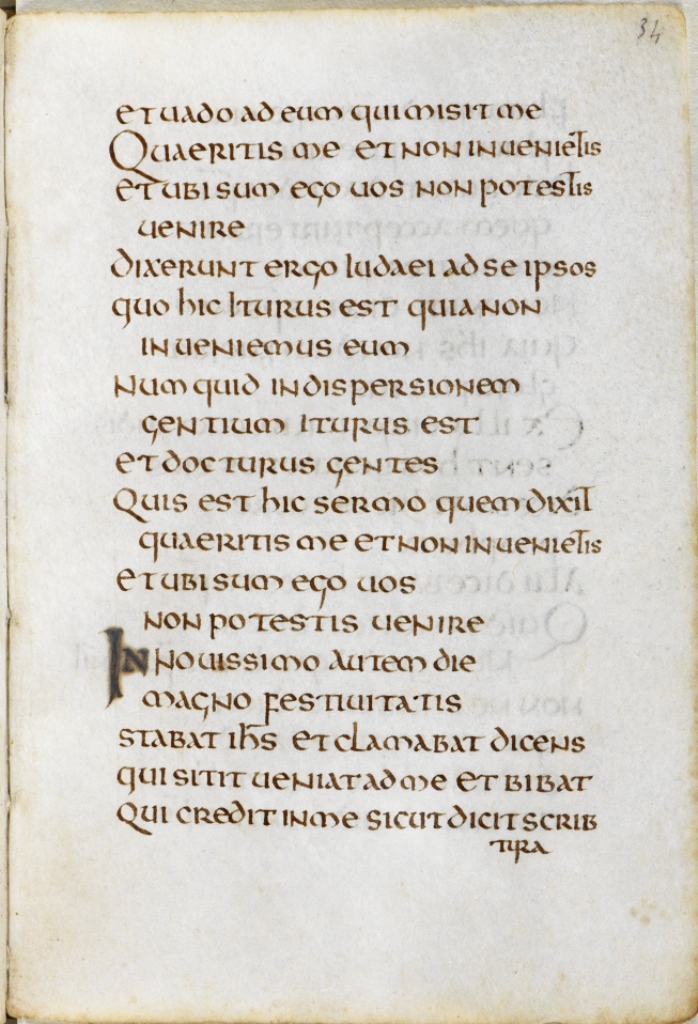 34
et uado ad eum qui misit me
Quaeritis me et non inuenietis
et ubi sum ego uos non potestis
uenire
dixerunt ergo Iudaei ad se ipsos
quo hic Iturus est quia non
inueniemus eum
Numquid in dispersionem
gentium Iturus est
et docturus gentes
Quis est hic sermo quem dixit
quaeritis me et non inuenietis
et ubi sum ego uos
non potestis uenire
In Nouissimo autem die
magno festiuitatis
stabat ihs et clamabat dicens
qui sitit ueniat ad me et bibat
Qui credit in me sicut dicit scrib
tura